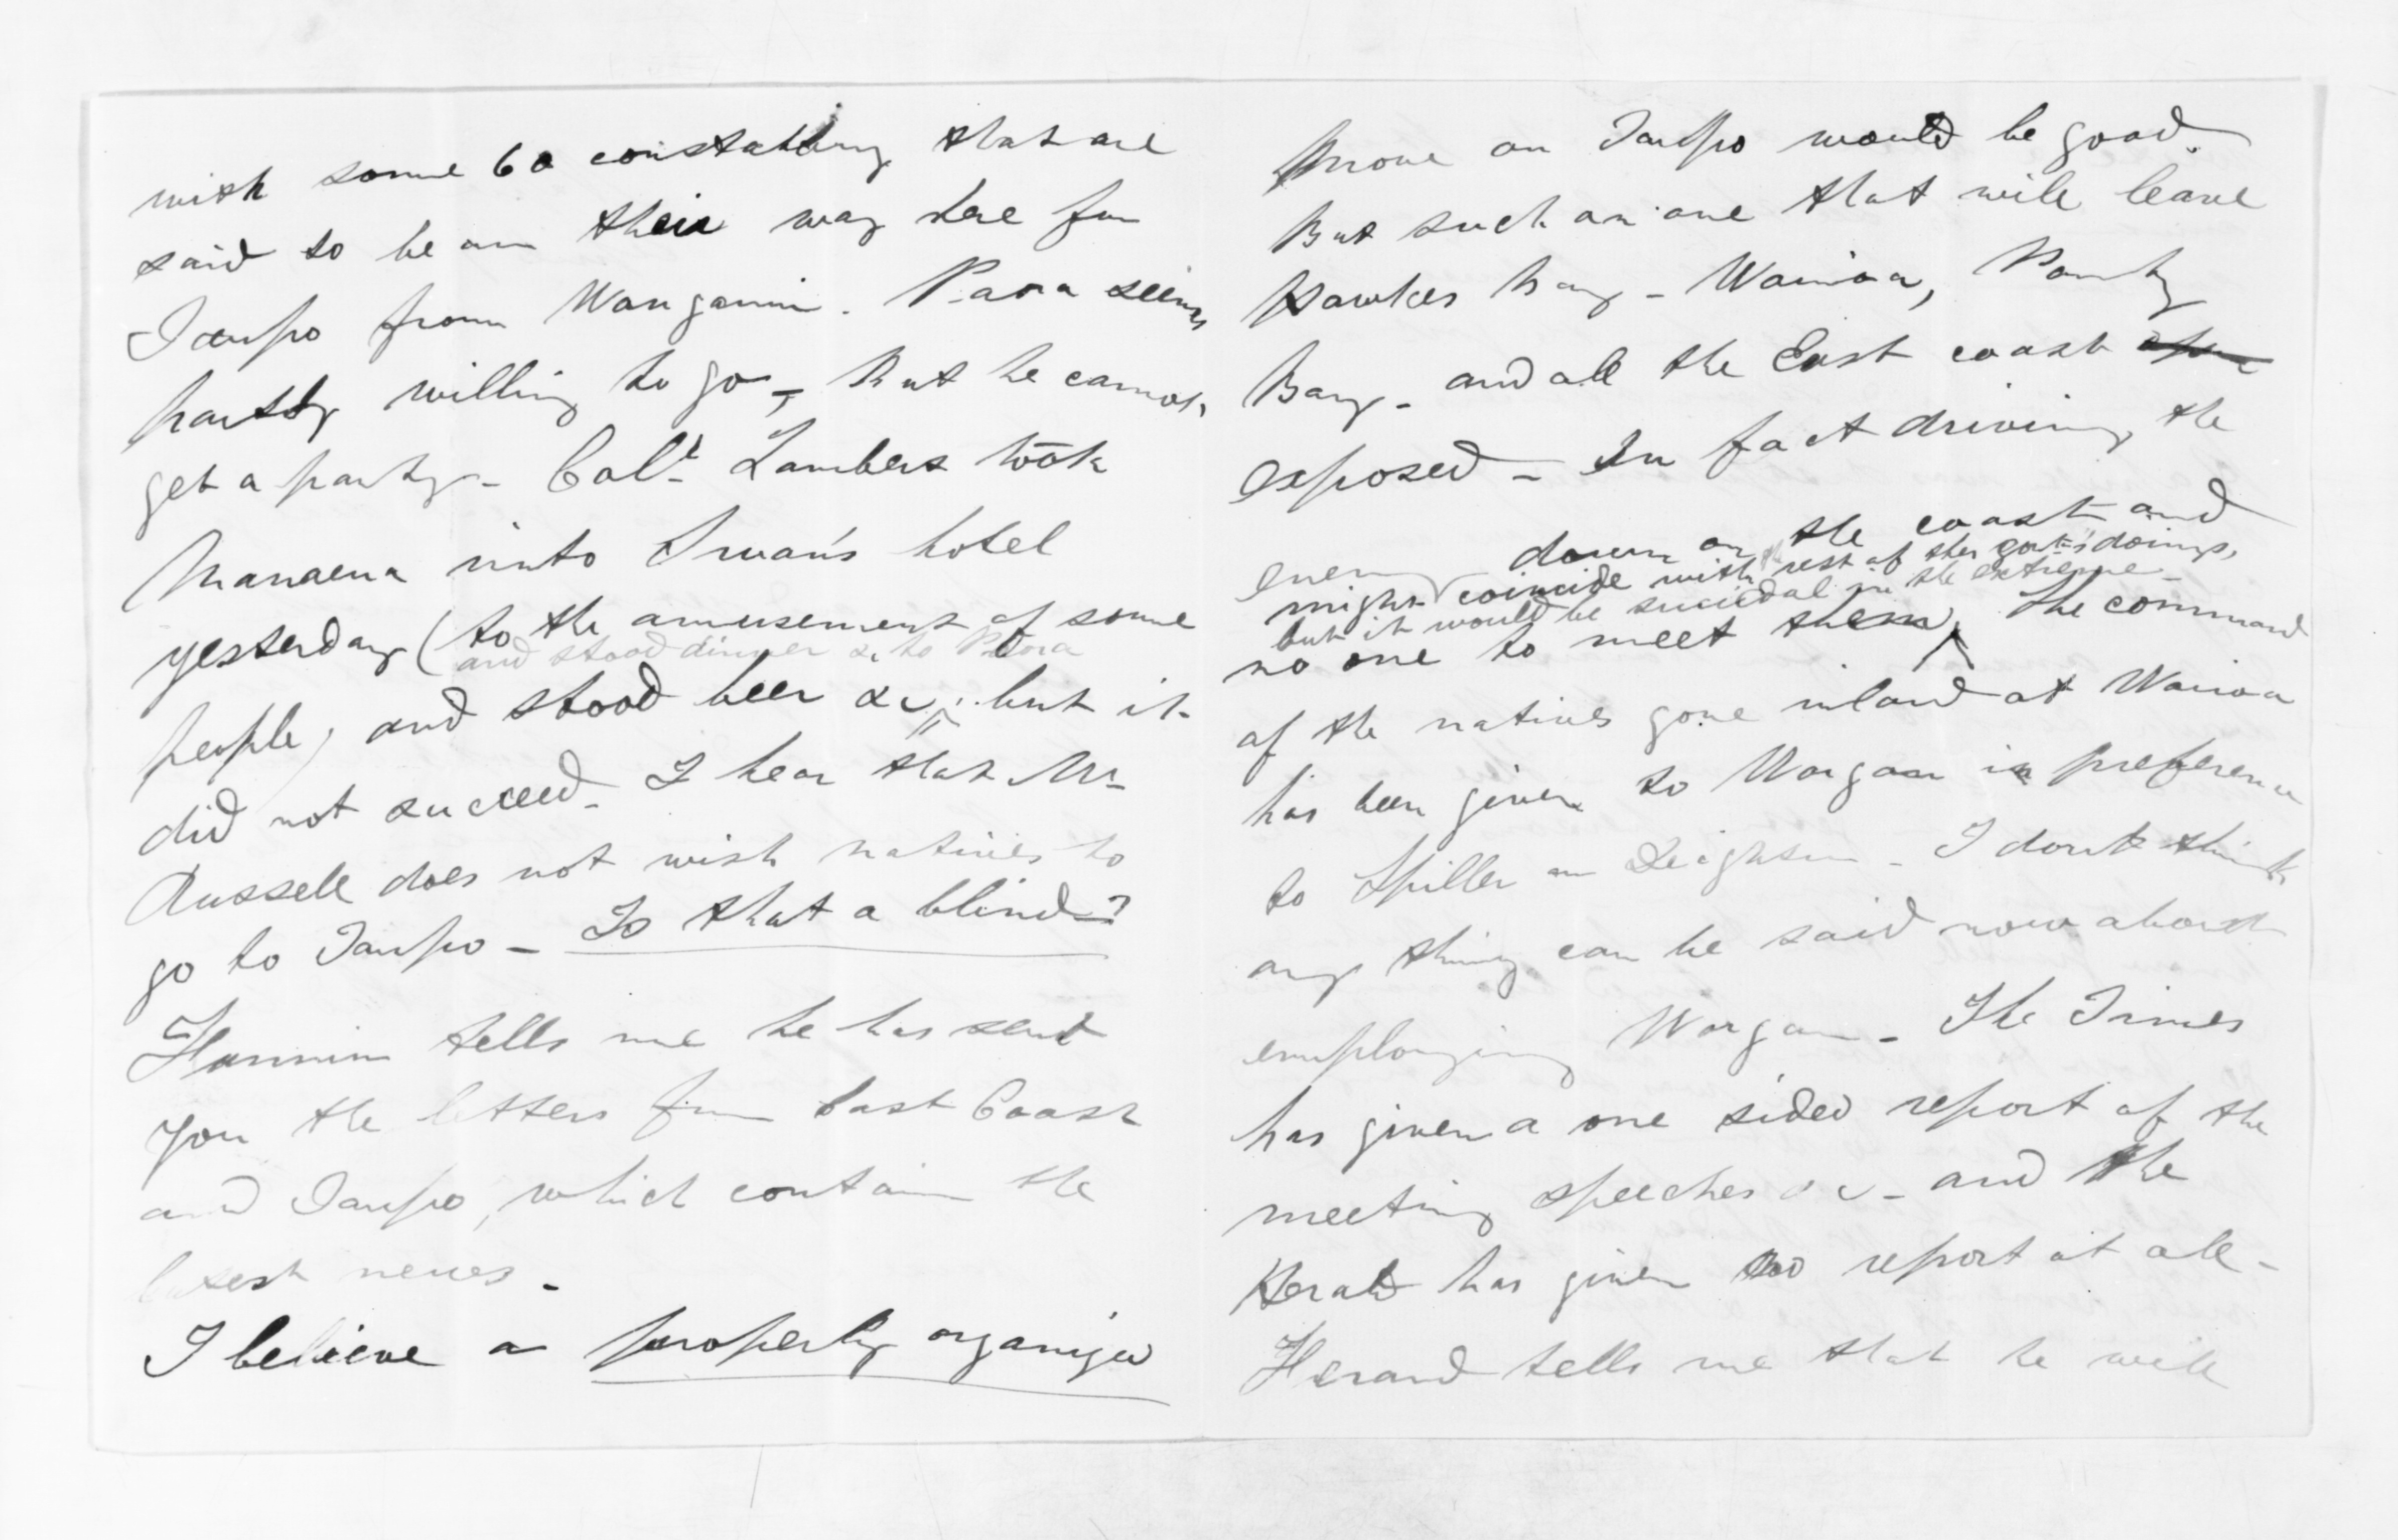 with some 60 constabulary that are
said to be on their way here for
Taupo from Wanganui. Paora seems
partly willing to go - but he cannot
get a party - Colᵗ Lambert took
Manaena into Swan's hotel
yesterday (to the amusement of some
and stood dinner &c to Paora
people) and stood beer &c, but it
did not succeed - I hear that Mr
Russell does not wish natives to
go to Taupo - Is that a blind?
Hannin tells me he has sent
you the letters from East Coast
and Taupo, which contain the
latest news -
I believe a properly organized
move on Taupo would be good.
But such an one that will leave
Hawkes bay - Wairoa, Poverty
Bay - and all the East coast
exposed - In fact driving the
enemy down on the coast and
might coincide with rest of the govt's doings,
but it would be suicidal in the extreme -
no one to meet them. The command
of the natives gone inland at Wairoa
has been given to Worgan in preference
to Spiller or Deighton - I dont think
any thing can be said now about
employing Worgan - The Times
has given a one sided report of the
meeting speeches &c - and the
Herald has given no report at all -
Herand tells me that he will